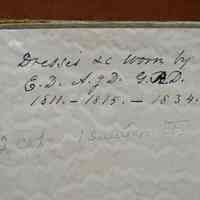 Dresses &c worn by
E.D. A.J.D. G.R.D.
1811. - 1815. - 1834.
2 cat. 1